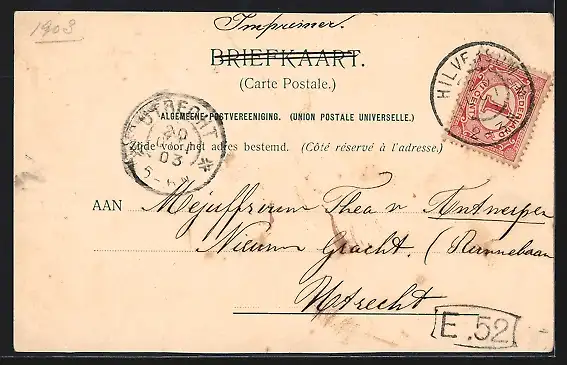 1903
Imprimer.
BRIEFKAART.
(Carte Postale.)
ALGEMEENE POSTVEREENIGING. (UNION POSTALE UNIVERSELLE.)
Zijde voor het adres bestemd. (Côté réservé à l'adresse.)
UTRECHT
03
HILVE
NEDERLAND
1
AAN Mejuffrouw Thea v Antwerpen
Nieuwe Gracht. (Runnebaan
Utrecht
E.52